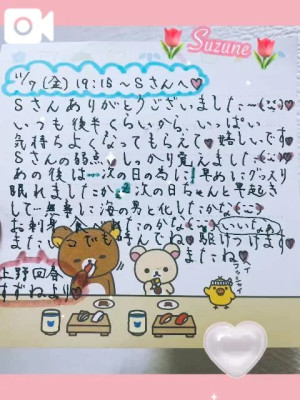 Suzune
11/7(金)19:15～Sさんへ♡
Sさんありがとうございました～(˙꒳˙)♡
いつも後半くらいから、いっぱい
気持ちよくなってもらえて♡嬉しいです
Sさんの弱点、しっかり覚えました
あの後は…次の日の為に!早めにグッスリ
眠れましたか?次の日ちゃんと早起き
して無事に海の男と化したかな
お刺身 たのかな いいなぁ
またいつでも呼んでね♡駆けつけます♡
またね♡
上野回春
すずねより♡